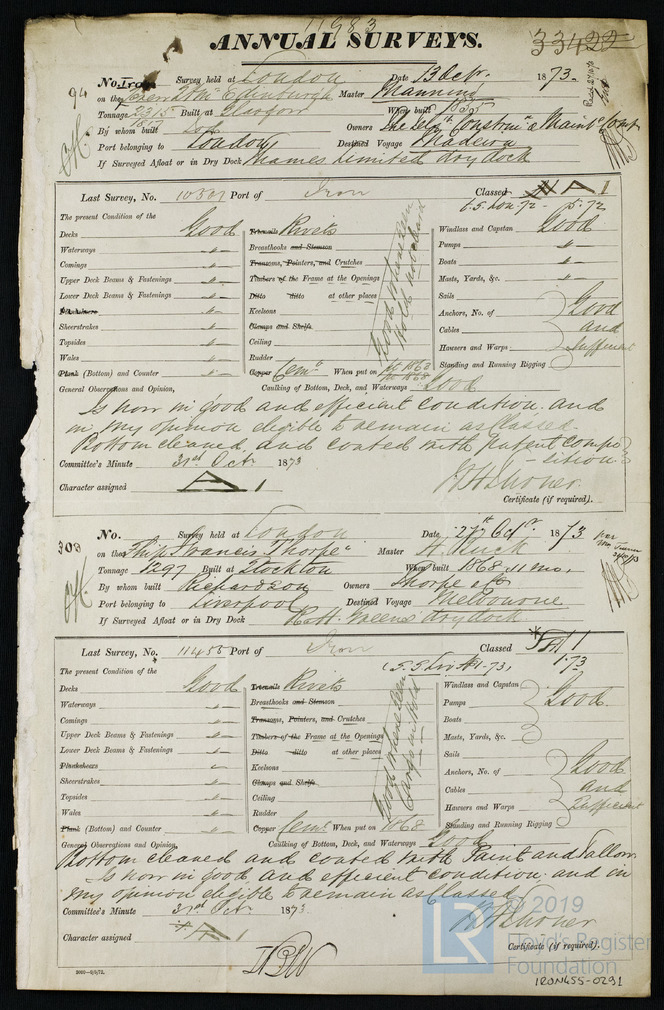 11983
ANNUAL SURVEYS. 33422
No. Iron Survey held at London Date 13 Oct. 1873.
94 on the Screw Str "Edinburgh" Master Manning
Tonnage 2315 Built at Glasgow When built 1855
1817
By whom built Owners The Telgh Constrn & Maintce Comp
Port belonging to London Destined Voyage Madeira
If Surveyed Afloat or in Dry Dock Thames Limited dry dock
Last Survey, No. 10507 Port of Iron Classed A 1
S.S. Lon. 72 - 5.72
The present Condition of the
Decks Good Treenails Rivets Windlass and Capstan Good
Waterways " Breasthooks and Stemson Pumps "
Comings " Transoms, Pointers, and Crutches Boats "
Upper Deck Beams & Fastenings " Timbers of the Frame at the Openings Masts, Yards, &c. "
Lower Deck Beams & Fastenings " Ditto ditto at other places Sails
Planksheers " Keelsons Anchors, No. of Good
Sheerstrakes " Clamps and Shelfs Cables and
Topsides " Ceiling Hawsers and Warps Sufficient
Wales " Rudder Standing and Running Rigging
Plank (Bottom) and Counter " Copper Cemt When put on 1862
1868
Good where seen
Hold
General Observations and Opinion, Caulking of Bottom, Deck, and Waterways Good
Is now in good and efficient condition and
in my opinion eligible to remain as classed.
Bottom cleaned and coated with patent compo
-sition
Committee's Minute 31st Oct 1873
Character assigned A 1
Certificate (if required).
No. Survey held at London Date 27th Octr. 1873
303 on the Ship "Francis Thorpe" Master H. Huck
Tonnage 1297 Built at Stockton When built 1868 11 mo.
By whom built Richardson Owners Thorpe & Co
Port belonging to Liverpool Destined Voyage Melbourne
If Surveyed Afloat or in Dry Dock R & H. Greens dry dock
Last Survey, No. 11455 Port of Iron Classed A 1
(S.S. Liv No 1-73) 1.73
The present Condition of the
Decks Good Treenails Rivets Windlass and Capstan
Waterways " Breasthooks and Stemson Pumps Good
Comings " Transoms, Pointers, and Crutches Boats
Upper Deck Beams & Fastenings " Timbers of the Frame at the Openings Masts, Yards, &c.
Lower Deck Beams & Fastenings " Ditto ditto at other places Sails
Planksheers " Keelsons Anchors, No. of Good
Sheerstrakes " Clamps and Shelfs Cables and
Topsides " Ceiling Hawsers and Warps Sufficient
Wales " Rudder Standing and Running Rigging
Plank (Bottom) and Counter " Copper Cemt When put on 1868
Good where seen
Cargo in Hold
General Observations and Opinion, Caulking of Bottom, Deck, and Waterways Good
Bottom cleaned and coated with Paint and Tallow
Is now in good and efficient condition and in
my opinion eligible to remain as Classed
Committee's Minute 31st Oct 1873
Character assigned A 1
Certificate (if required).
2000-9/5/72.
LR © 2019
Lloyd's Register
Foundation
IRON455-0291